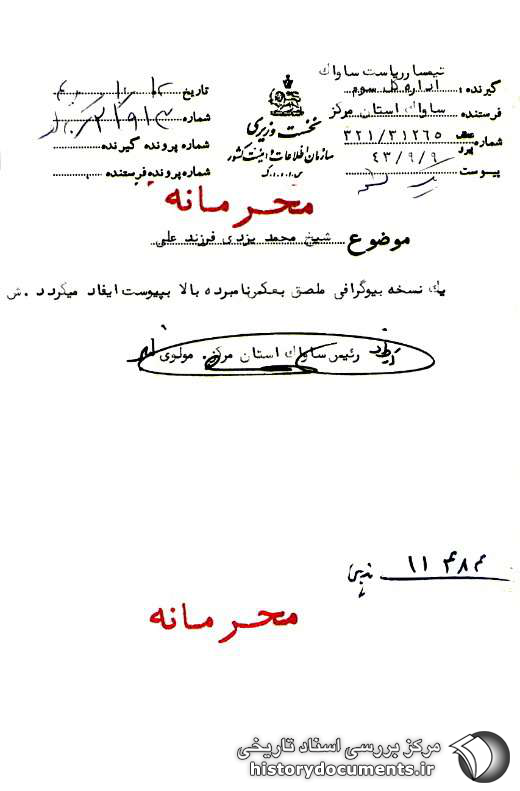 تیمسار ریاست ساواک
گیرنده : اداره کل سوم
فرستنده ساواک استان مرکز
شماره ۳۲۱/۳۱۲۶۵
۴۳/۹/۹
پیوست
نخست وزیری
سازمان اطلاعات و امنیت کشور
س.ا.و.ا.ک
تاریخ
شماره
شماره پرونده گیرنده
شماره پرونده فرستنده
محرمانه
موضوع شیخ محمد یزدی فرزند علی
یک نسخه بیوگرافی ملصق بعکس نامبرده بالا بپیوست ایفاد میگردد . ش
رئیس ساواک استان مرکز . مولوی
محرمانه
مرکز بررسی اسناد تاریخی
historydocuments.ir